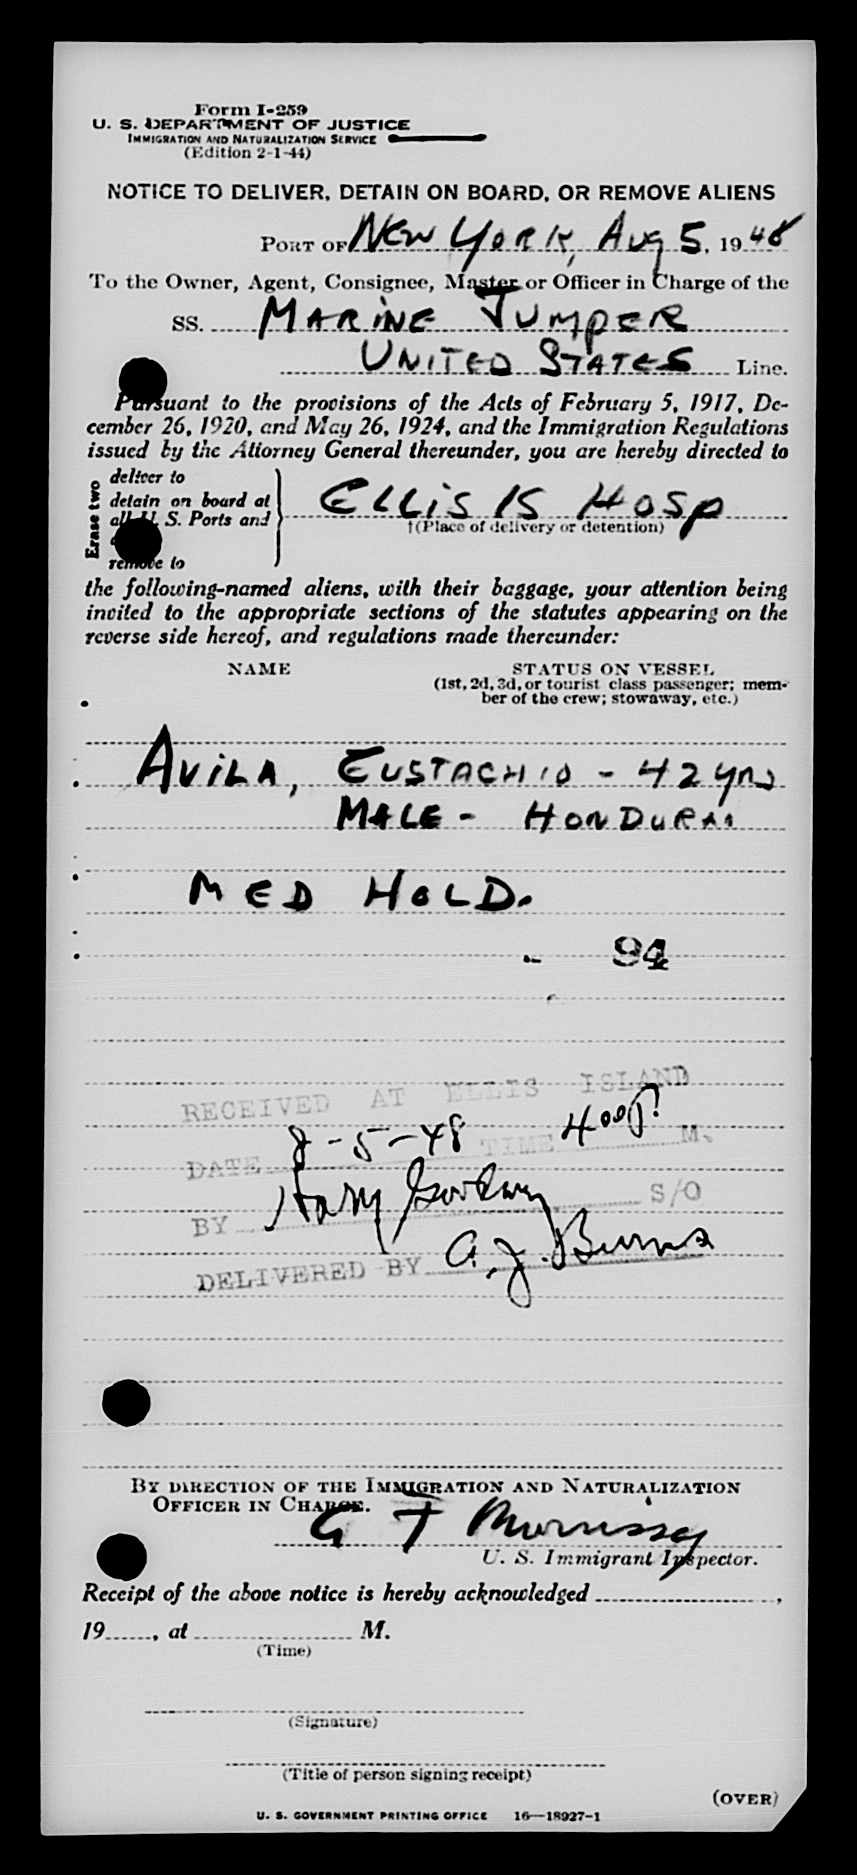 Form I-259
U. S. DEPARTMENT OF JUSTICE
IMMIGRATION AND NATURALIZATION SERVICE
(Edition 2-1-44)
NOTICE TO DELIVER, DETAIN ON BOARD, OR REMOVE ALIENS
PORT OF NEW YORK, AUG 5, 1948
To the Owner, Agent, Consignee, Master or Officer in Charge of the
SS. MARINE JUMPER
UNITED STATES Line.
Pursuant to the provisions of the Acts of February 5, 1917, De-
cember 26, 1920, and May 26, 1924, and the Immigration Regulations
issued by the Attorney General thereunder, you are hereby directed to
Erase two
deliver to
detain on board at
all U. S. Ports and
remove to
ELLIS IS HOSP
†(Place of delivery or detention)
the following-named aliens, with their baggage, your attention being
invited to the appropriate sections of the statutes appearing on the
reverse side hereof, and regulations made thereunder:
NAME STATUS ON VESSEL
(1st, 2d, 3d, or tourist class passenger; mem-
ber of the crew; stowaway, etc.)
AVILA, EUSTACHIO - 42 yrs
MALE - HONDURAS
MED HOLD.
94
RECEIVED AT ELLIS ISLAND
DATE 8-5-48 TIME 400P M.
BY Harry S/O
DELIVERED BY A. J. Burns
BY DIRECTION OF THE IMMIGRATION AND NATURALIZATION
OFFICER IN CHARGE.
G F Morrissey
U. S. Immigrant Inspector.
Receipt of the above notice is hereby acknowledged ,
19 , at M.
(Time)
(Signature)
(Title of person signing receipt)
(OVER)
U. S. GOVERNMENT PRINTING OFFICE 16—18927-1